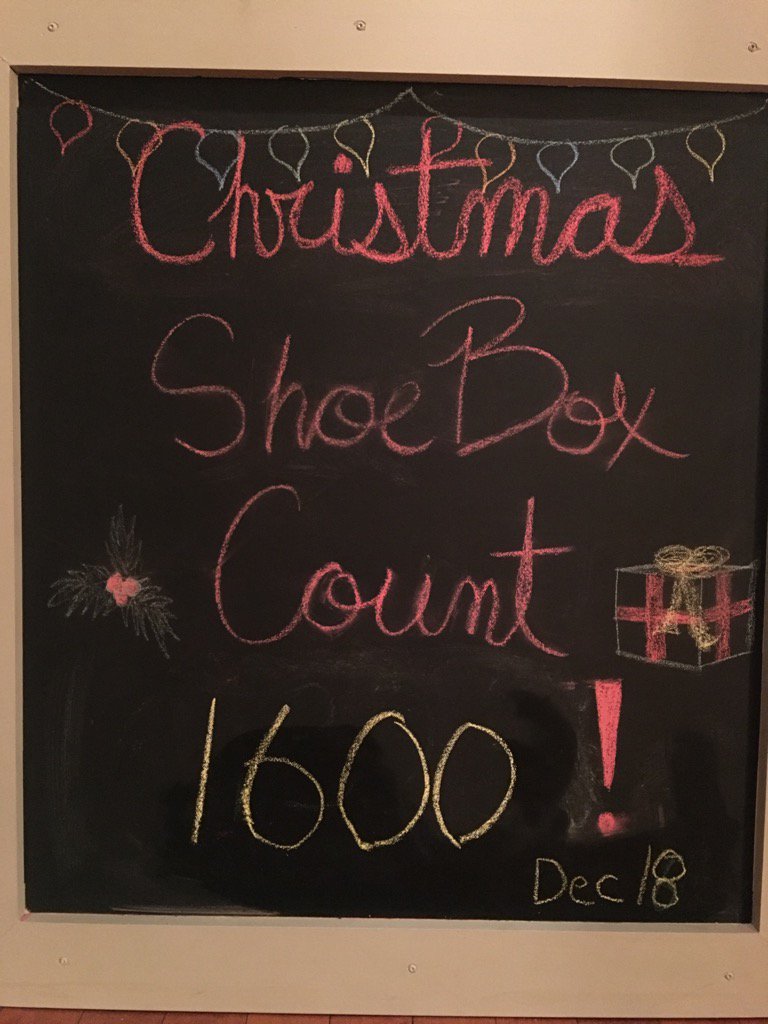 Christmas
ShoeBox
Count
1600!
Dec 18